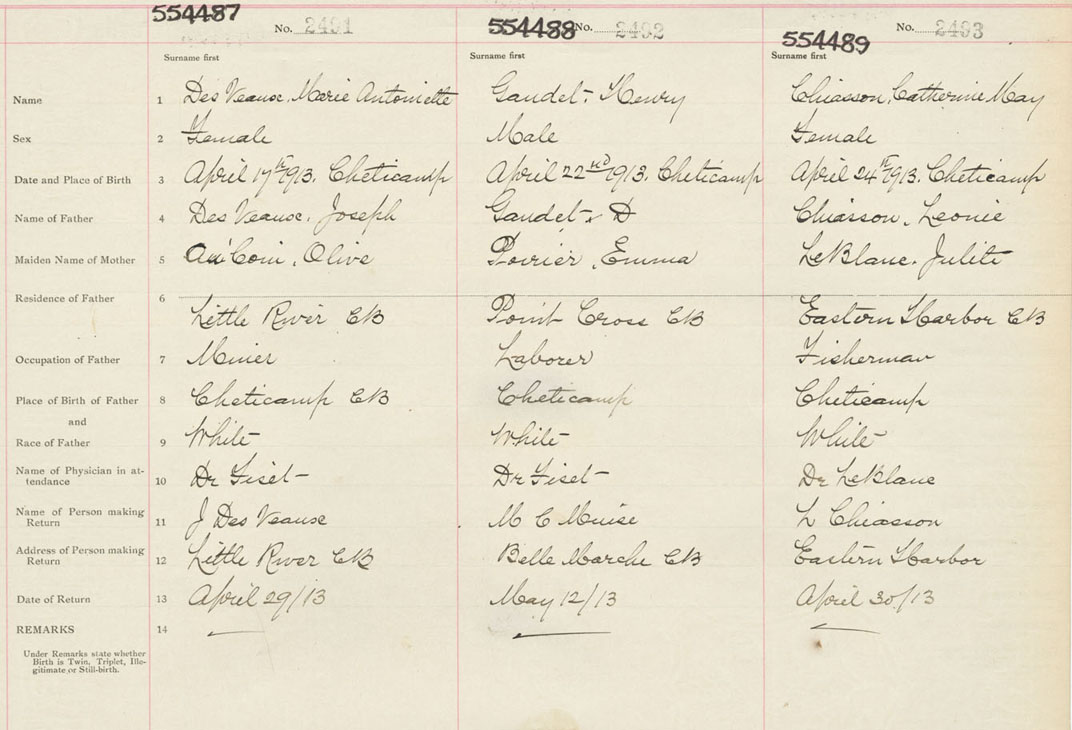 554487 No. 2491 554488 No. 2492 554489 No. 2493
Surname first Surname first Surname first
Name 1 Des Veaux, Marie Antoinette Gaudet, Henry Chiasson, Catherine May
Sex 2 Female Male Female
Date and Place of Birth 3 April 17th 1913. Cheticamp April 22nd 1913. Cheticamp April 24th 1913. Cheticamp
Name of Father 4 Des Veaux, Joseph Gaudet, D Chiasson, Leonie
Maiden Name of Mother 5 AuCoin, Olive Poirier, Emma LeBlanc. Julite
Residence of Father 6 Little River CB Point Cross CB Eastern Harbor CB
Occupation of Father 7 Minier Laborer Fisherman
Place of Birth of Father 8 Cheticamp CB Cheticamp Cheticamp
and
Race of Father 9 White White White
Name of Physician in at-
tendance 10 Dr Fiset Dr Fiset Dr LeBlanc
Name of Person making
Return 11 J Des Veaux M C Muise L Chiasson
Address of Person making
Return 12 Little River CB Belle Marche CB Eastern Harbor
Date of Return 13 April 29/13 May 12/13 April 30/13
REMARKS 14
Under Remarks state whether
Birth is Twin, Triplet, Ille-
gitimate or Still-birth.